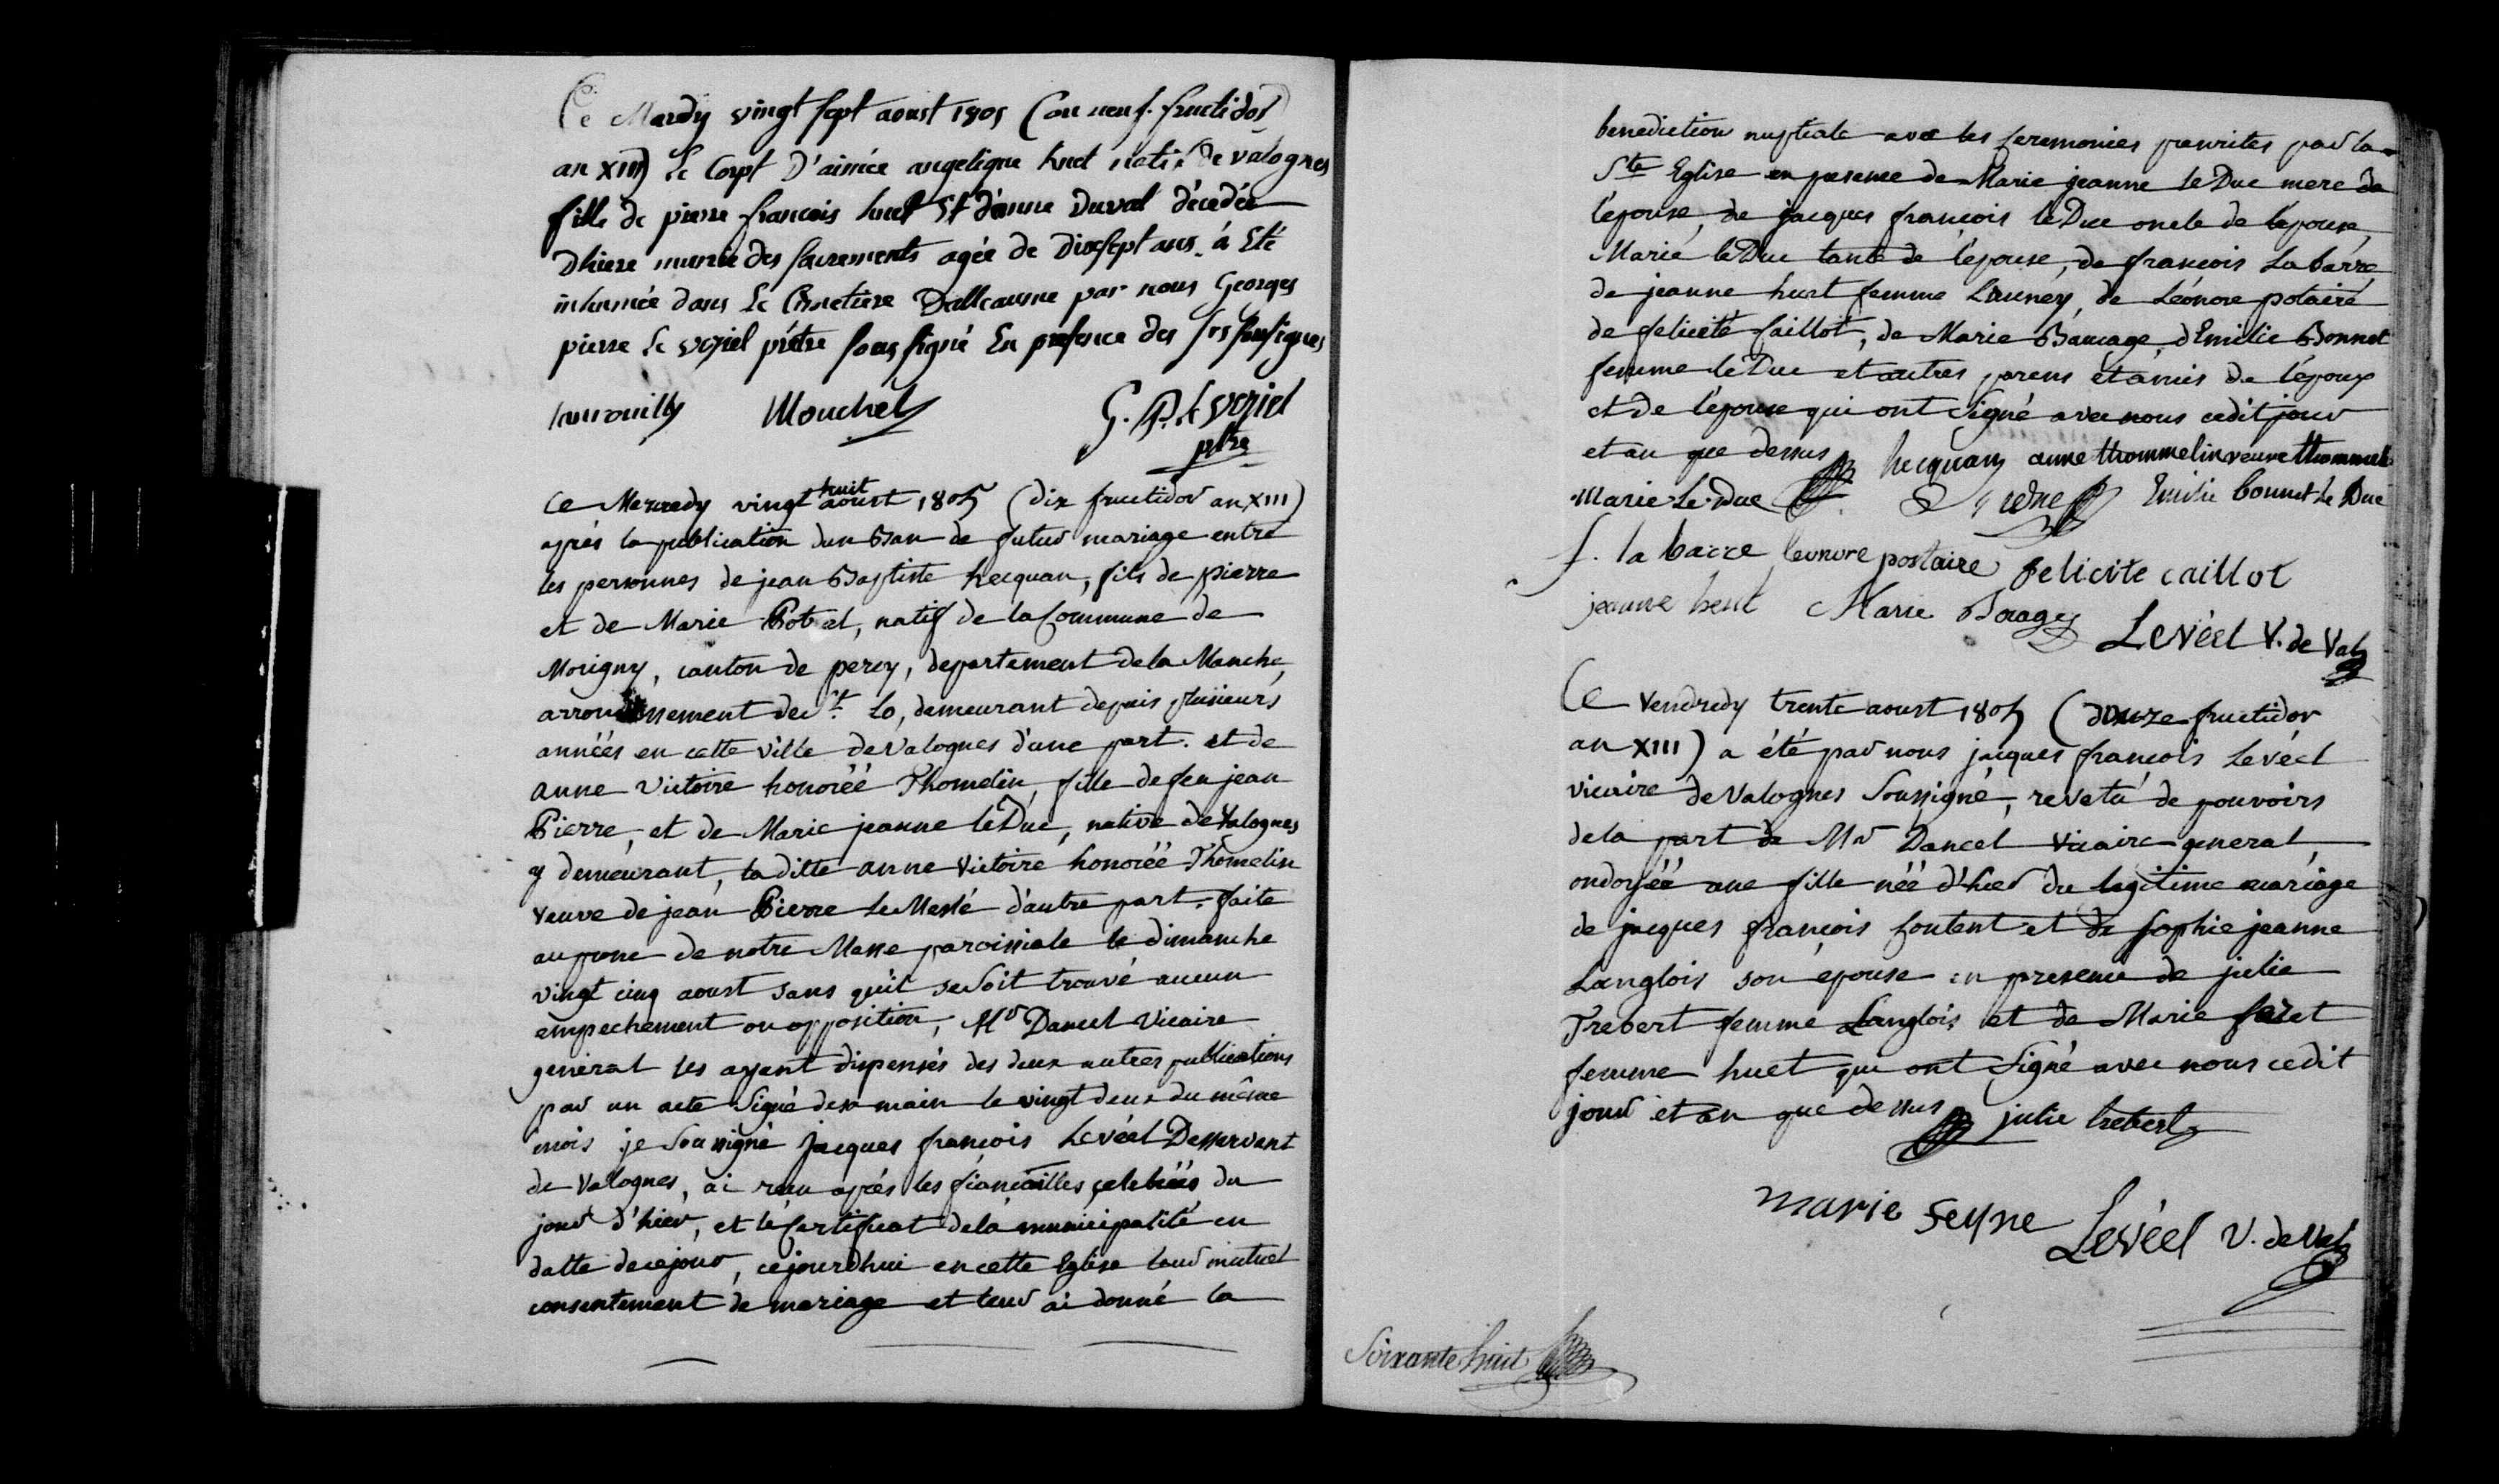 Ce Mardy vingt sept aoust 1805 (ou neuf fructidor
an XIII) Le Corps D'aimée angelique huet natif de valognes
fille de pierre francois huet Et d'anne Duval décedée
Dhiere munie des sacrements agée de dixsept ans. à Eté
inhumée dans Le Cimetiere Dalleaume par nous Georges
pierre Le vesiel prêtre soussigné En presence des srs soussignés
Mouchel G. P. Le vesiel
ptre
ce Mercredy vingt huit aoust 1805 (dix fructidor an XIII)
après la publication d'un Ban de futur mariage entre
les personnes de jean Baptiste hecquan, fils de pierre
et de Marie Potrel, natif de la Commune de
Morigny, canton de percy, departement de la Manche,
arrondissement de St. Lo, demeurant depuis plusieurs
annéés en cette ville de Valognes d'une part. et de
anne Victoire honoréé Thomelin, fille de feu jean
Pierre, et de Marie jeanne le Duc, native de Valognes
y demeurant, la ditte anne Victoire honoréé Thomelin
veuve de jean Pierre Le Meslé d'autre part, faite
au prone de notre Messe paroissiale le dimanche
vingt cinq aoust sans qu'il se soit trouvé aucun
empechement ou opposition, Mr Dancel Vicaire
general les ayant dispensés des deux autres publications
par un acte signé de sa main le vingt deux du même
mois je soussigné jacques françois Levéel Desservant
de Valognes, ai reçu après les fiançailles celebréés du
jour d'hier, et le certificat de la municipalité en
datte de ce jour, cejourdhui en cette Eglise leur mutuel
consentement de mariage et leur ai donné la
benediction nuptiale avec les ceremonies prescrites par la
Ste Eglise en presence de Marie jeanne Le Duc mere de
l'épouse, de jacques françois le Duc oncle de l'épouse,
Marie le Duc tante de l'épouse, de francois La barre
de jeanne huet femme Launey, de Léonore potaire
de felicité Caillot, de Marie Baucage, d'Emilie Bonnet
femme le Duc et autres parens et amis de l'époux
et de l'épouse qui ont signé avec nous cedit jour
et an que dessus hecquan anne thommelin veuve
Marie Le Duc Emilie bonnet Le Duc
f. la barre leonore postaire felicite caillot
jeanne huet Marie Bocages
Levéel V. de Val
Ce Vendredy trente aoust 1805 (douze fructidor
an XIII) a été par nous jacques françois Levéel
vicaire de Valognes Soussigné, revetu de pouvoirs
de la part de Mr Dancel Vicaire general,
ondoyéé une fille néé d'hier du legitime mariage
de jacques françois foutent et de sophie jeanne
Langlois son épouse en presence de julie
Trebert femme Langlois et de Marie
femme huet qui ont signé avec nous cedit
jour et an que dessus julie trebert
marie
Levéel V. de Val
Soixante huit